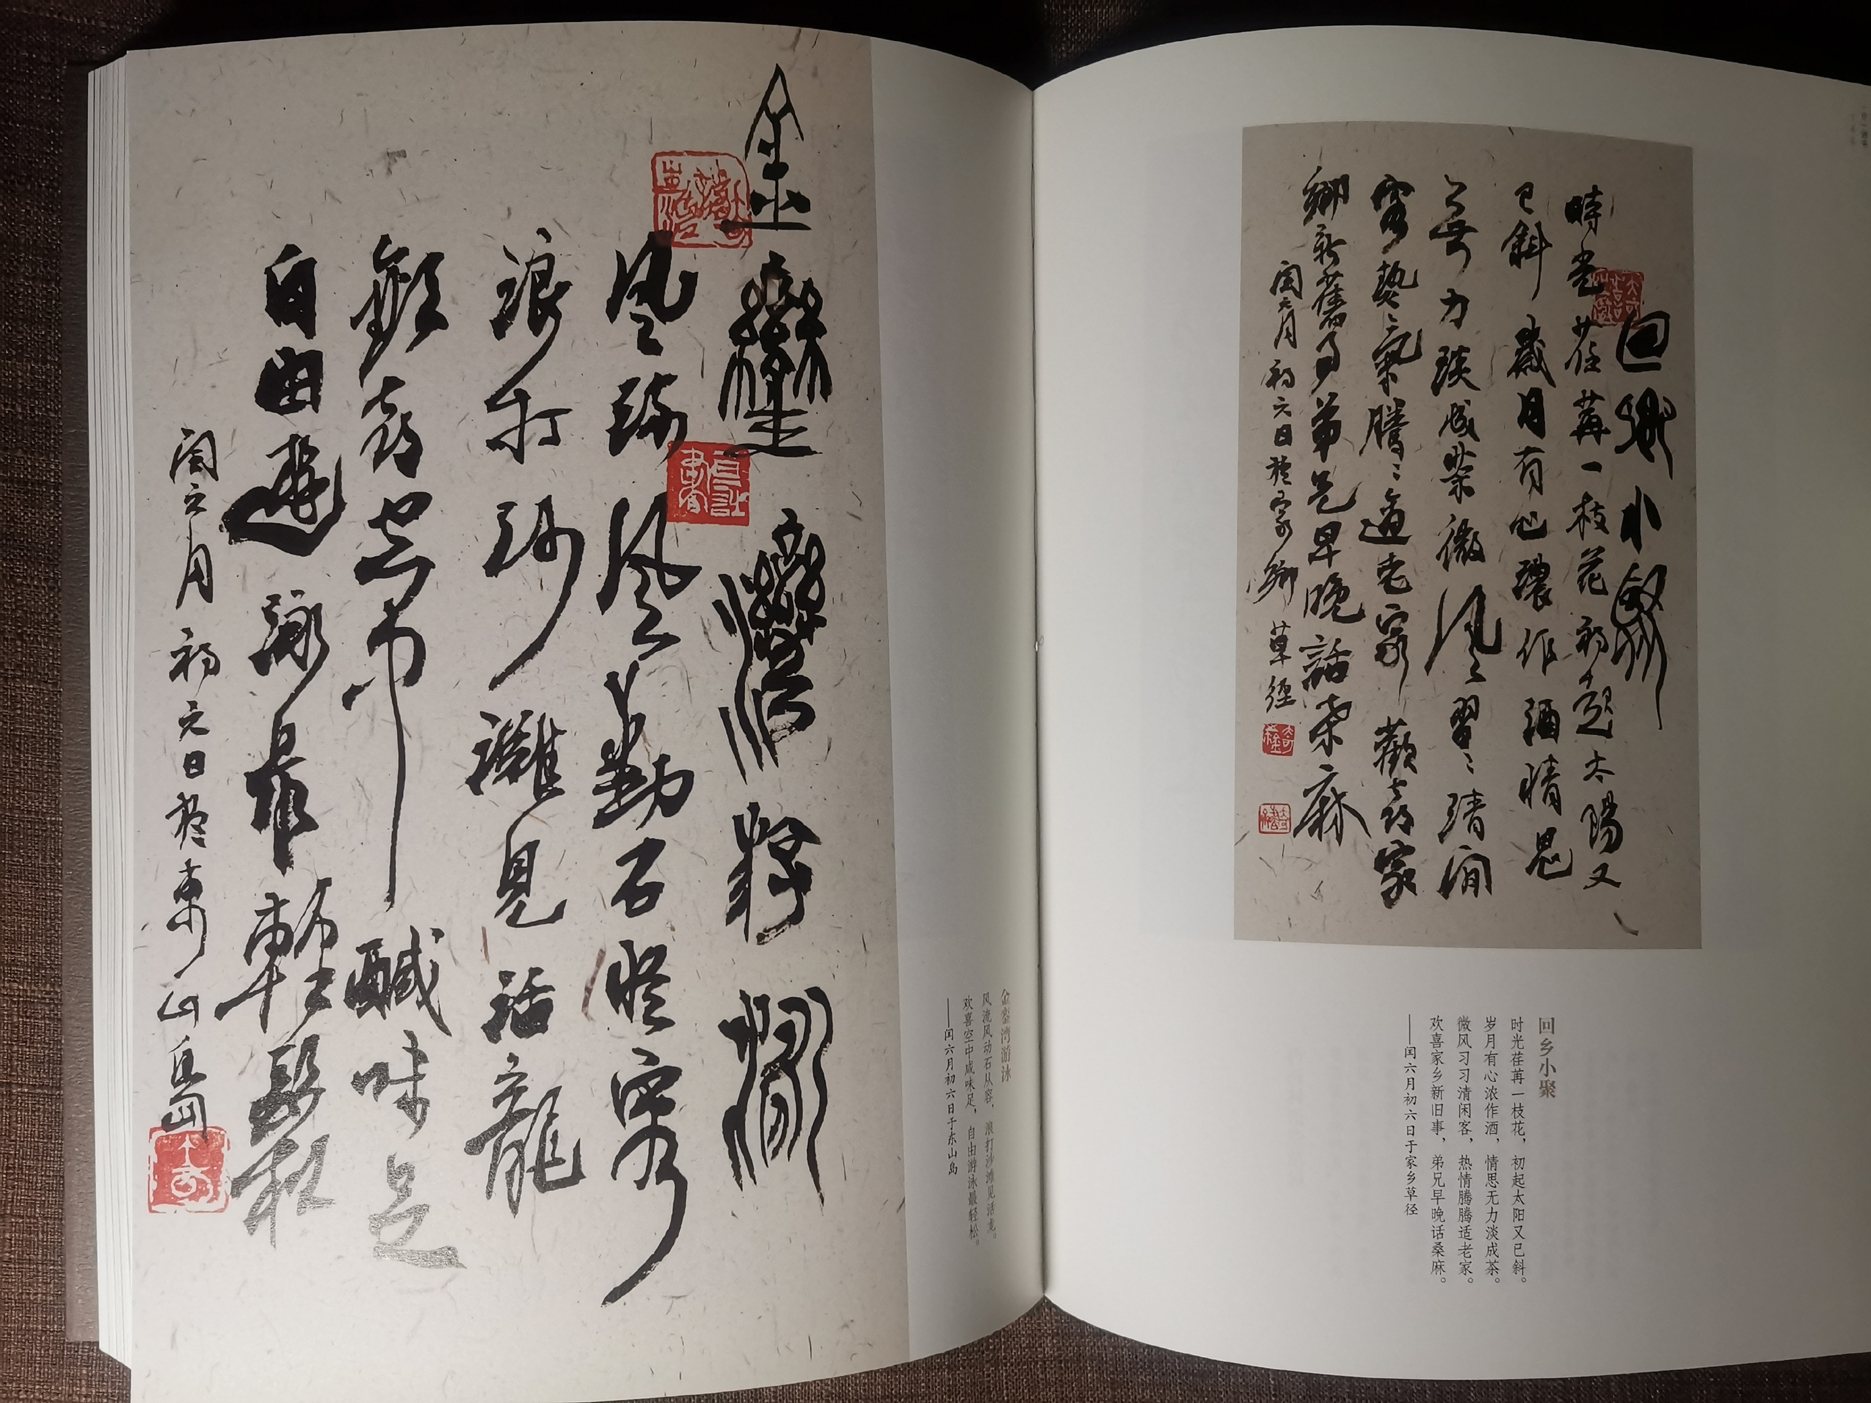 回鄉小聚
時光荏苒一枝花初起太陽又
已斜歲月有心濃作酒情思
無力淡成茶微風習習清閒
客熱氣騰騰適老家歡喜家
鄉新舊事弟兄早晚話桑麻
閏六月初六日於家鄉草徑
回乡小聚
时光荏苒一枝花，初起太阳又已斜。
岁月有心浓作酒，情思无力淡成茶。
微风习习清闲客，热情腾腾适老家。
欢喜家乡新旧事，弟兄早晚话桑麻。
——闰六月初六日于家乡草径
金鑾灣游泳
風流風動石從容
浪打沙灘見活龍
歡喜空中鹹味足
自由遊泳最輕鬆
閏六月初六日於東山島
金銮湾游泳
风流风动石从容，浪打沙滩见活龙。
欢喜空中咸味足，自由游泳最轻松。
——闰六月初六日于东山岛